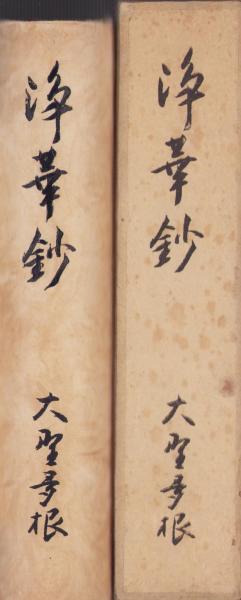 浄華鈔
大野多根
浄華鈔
大野多根